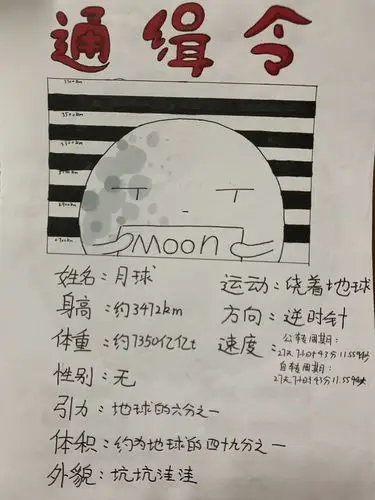 通缉令
3500km
Moon
姓名：月球
身高：约3472km
体重：约7350亿亿t
性别：无
引力：地球的六分之一
体积：约为地球的四十九分之一
外貌：坑坑洼洼
运动：绕着地球
方向：逆时针
速度：
公转周期：
27天7小时43分11.559秒
自转周期：
27天7小时43分11.559秒